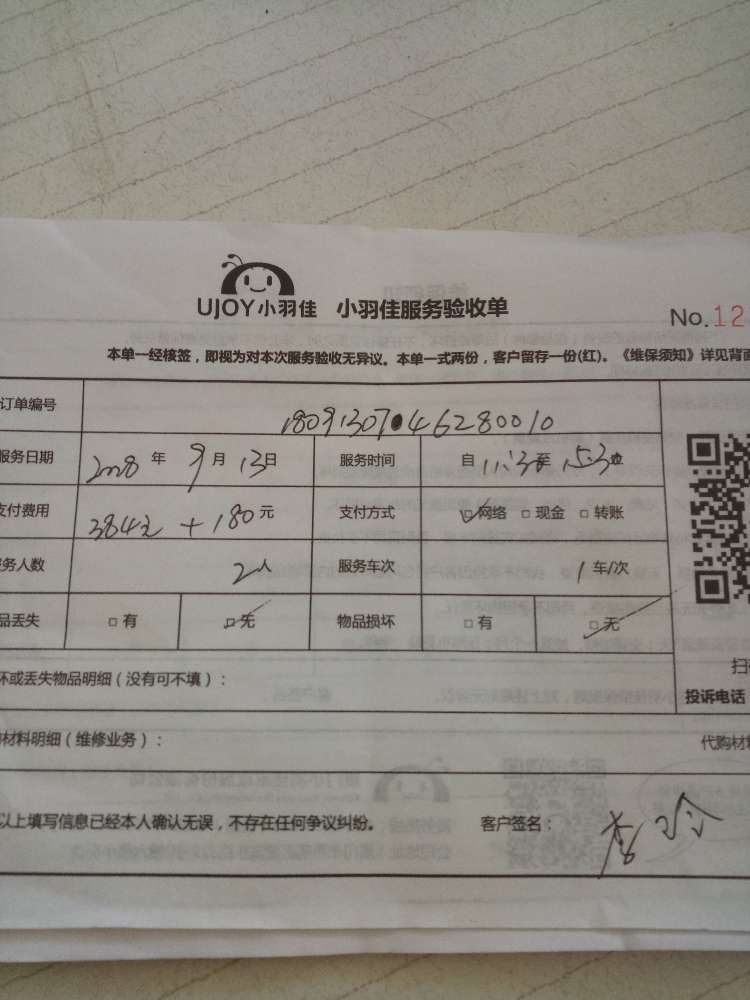 UJOY小羽佳 小羽佳服务验收单
No.12
本单一经核签，即视为对本次服务验收无异议。本单一式两份，客户留存一份(红)。《维保须知》详见背面
订单编号 1809130746280010
服务日期 2018 年 9 月 13 日 服务时间 自 11:30 至 15:30
支付费用 384元 + 180 元 支付方式 网络 现金 转账
服务人数 2 人 服务车次 1 车/次
品丢失 有 无 物品损坏 有 无
坏或丢失物品明细（没有可不填）： 扫
投诉电话
材料明细（维修业务）： 代购材料
以上填写信息已经本人确认无误，不存在任何争议纠纷。 客户签名： 李